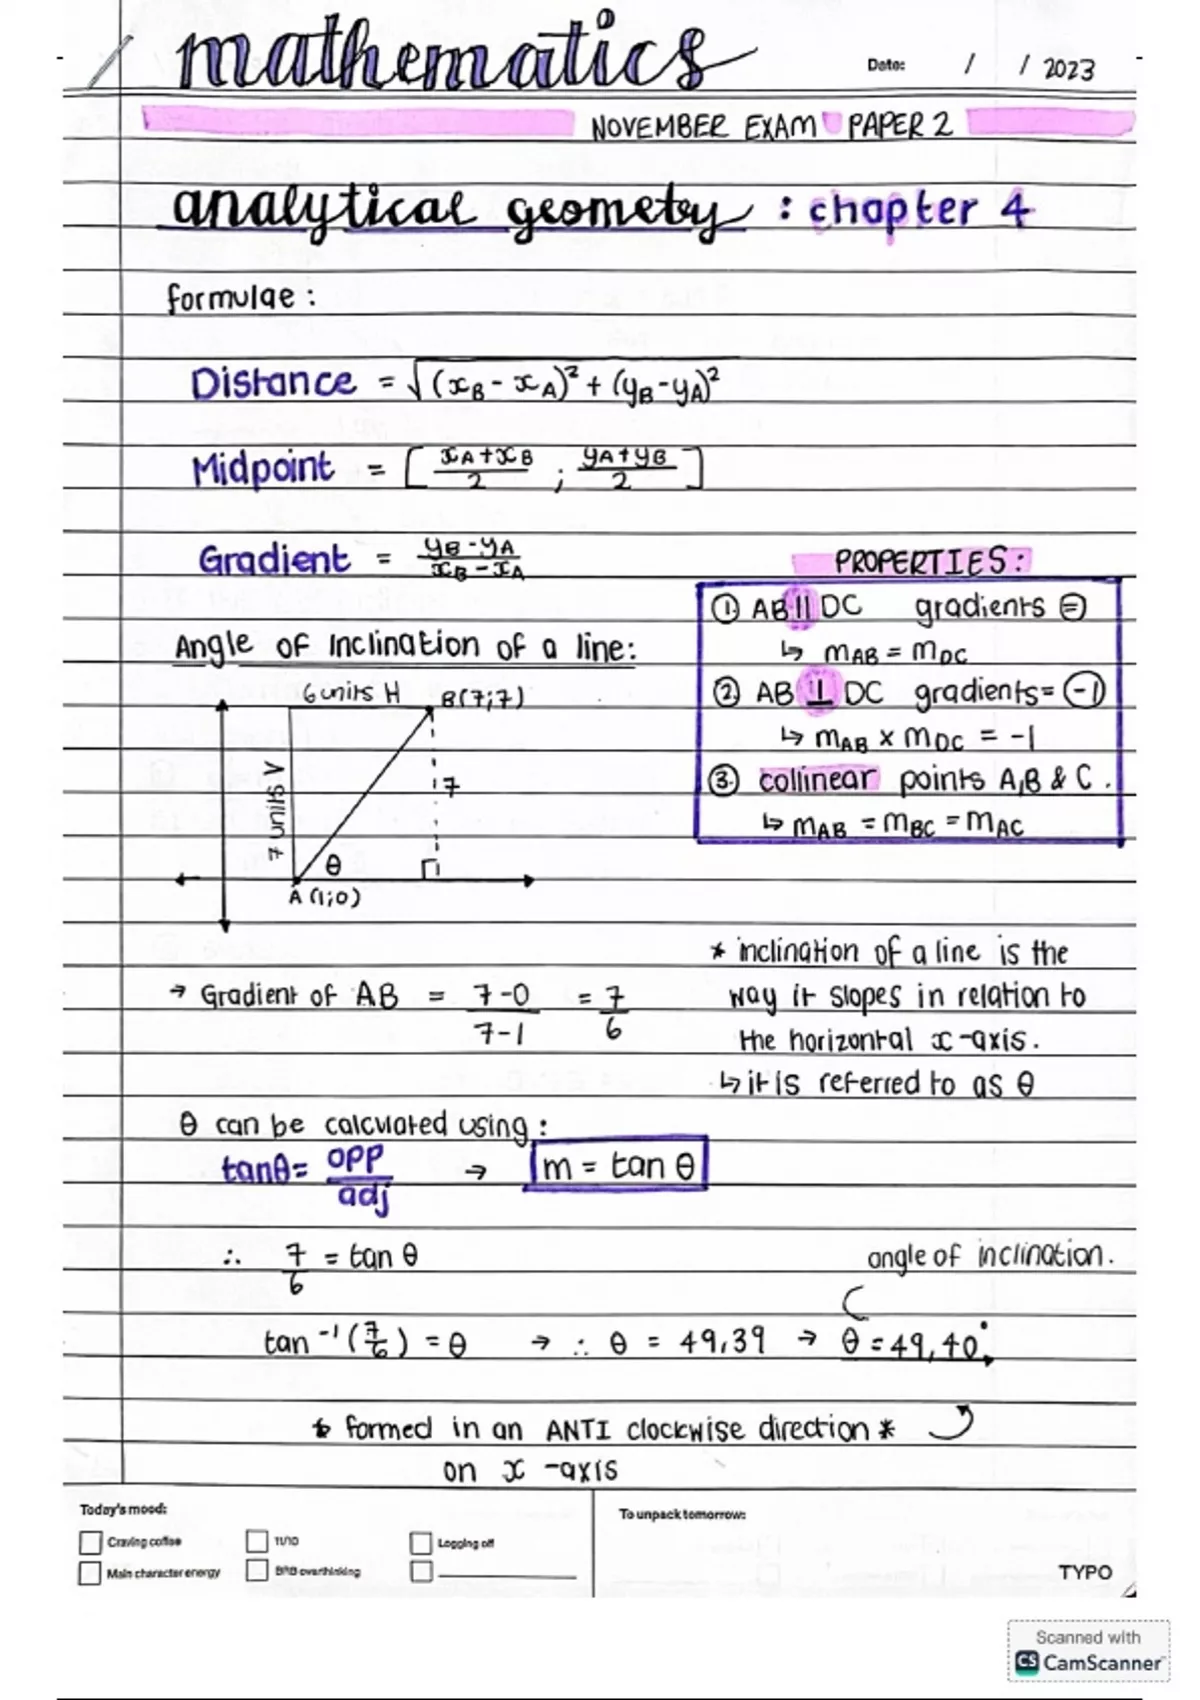 mathematics
Date: / / 2023
NOVEMBER EXAM PAPER 2
analytical geometry : chapter 4
formulae :
Distance = √(xB - xA)² + (yB - yA)²
Midpoint = [ xA + xB / 2 ; yA + yB / 2 ]
Gradient = yB - yA / xB - xA
PROPERTIES :
① AB || DC gradients =
↳ mAB = mDC
② AB ⊥ DC gradients = -1
↳ mAB x mDC = -1
③ collinear points A, B & C .
↳ mAB = mBC = mAC
Angle of Inclination of a line:
6 units H B(7;7)
7 units V
7
θ
A (1;0)
* inclination of a line is the
way it slopes in relation to
the horizontal x-axis.
↳ it is referred to as θ
→ Gradient of AB = 7-0 / 7-1 = 7/6
θ can be calculated using :
tanθ = opp/adj → m = tan θ
∴ 7/6 = tan θ
angle of inclination.
tan⁻¹(7/6) = θ → ∴ θ = 49,39 → θ = 49,40°
* formed in an ANTI clockwise direction *
on x -axis
Today's mood:
Craving coffee
11/10
Logging off
Main character energy
BRB overthinking
To unpack tomorrow:
TYPO
Scanned with
CS CamScanner